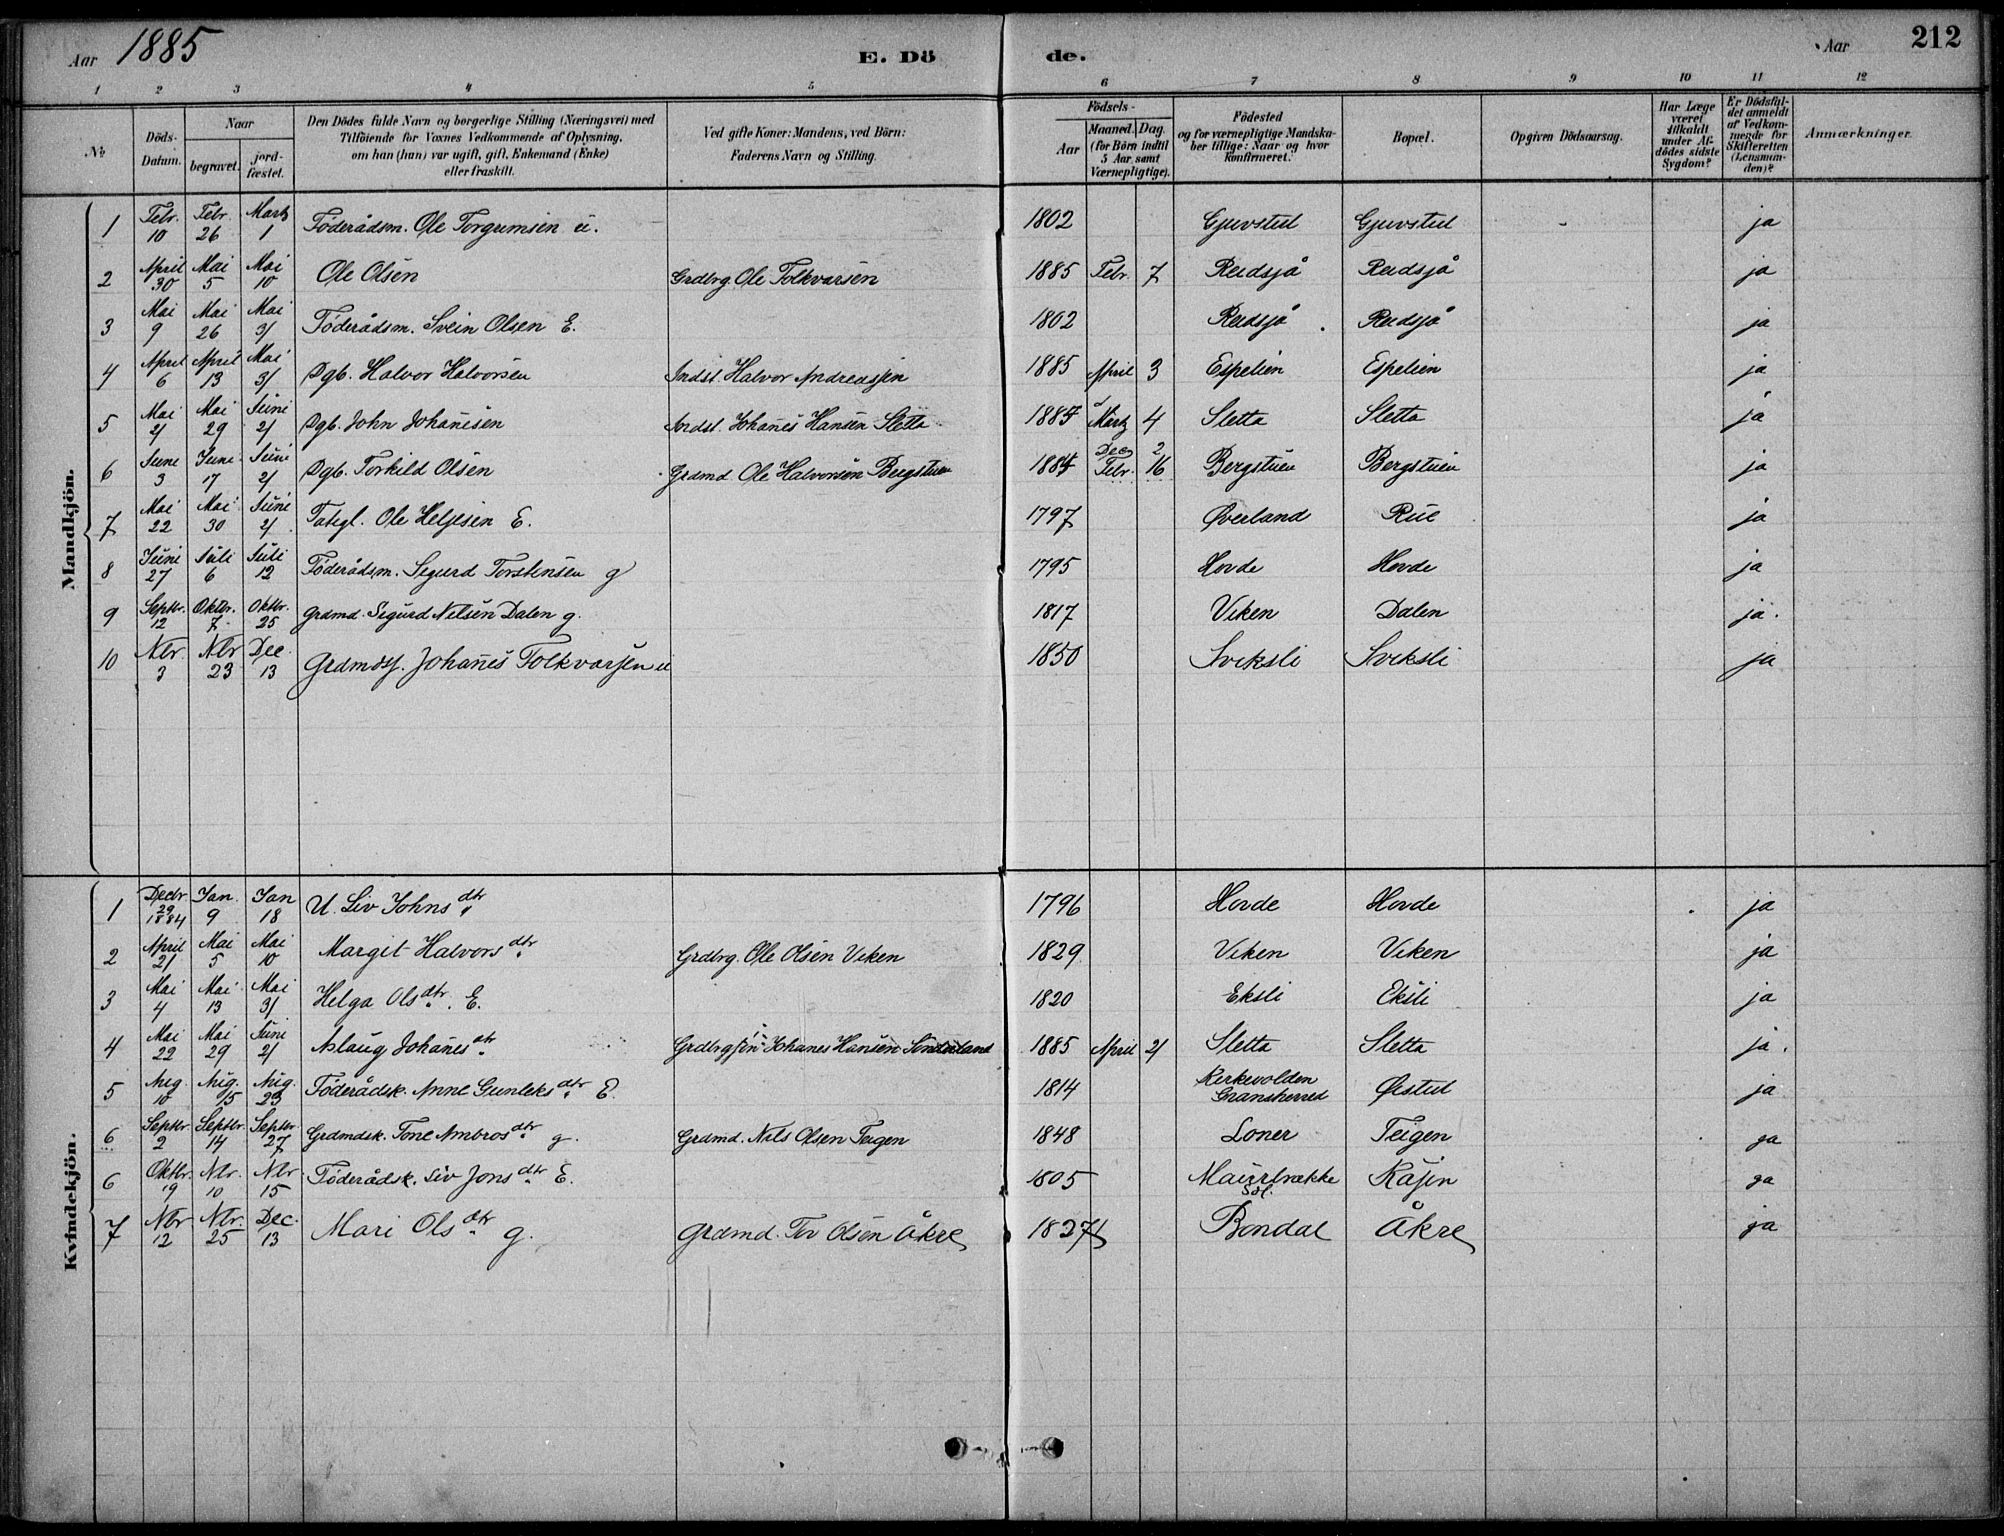 Aar 1885 E. Dö de. Aar 212
1 2 3 4 5 6 7 8 9 10 11 12
No Döds-Datum. Naar begravet. jord-fæstet. Den Dödes fulde Navn og borgerlige Stilling (Næringsvei) med Tilföiende for Voxnes Vedkommende af Oplysning, om han (hun) var ugift, gift, Enkemand (Enke) eller fraskilt. Ved gifte Koner: Mandens, ved Börn: Faderens Navn og Stilling. Födsels- Aar Maaned. Dag. (for Börn indtil 5 Aar samt Værnepligtige). Födested og for værnepligtige Mandskaber tillige: Naar og hvor konfirmeret. Bopæl. Opgiven Dödsaarsag. Har Læge været tilkaldt under Afdödes sidste Sygdom? Er Dödsfaldet anmeldt af Vedkommende for Skifteretten (Lensmanden)? Anmærkninger.
Mandkjön.
1 Febr. 10 Febr. 26 Marts 1 Föderådsm. Ole Torgrimsen u. 1802 Gjuvstul Gjuvstul ja
2 April 30 Mai 5 Mai 10 Ole Olsen Grdbrg. Ole Folkvarsen 1885 Febr. 7 Rudsjå Rudsjå ja
3 Mai 9 Mai 26 Mai 31 Föderådsm. Svein Olsen E. 1802 Rudsjå Rudsjå ja
4 April 6 April 13 Mai 31 Dgb. Halvor Halvorsen Indst. Halvor Andreassen 1885 April 3 Espelien Espelien ja
5 Mai 21 Mai 29 Juni 21 Dgb. John Johanesen Indst. Johanes Hansen Sletta Marts 4 Sletta Sletta ja
6 June 3 June 17 Juni 21 Dgb. Torkild Olsen Grdmd Ole Halvorsen Bergstuen 1884 Dec 2 Febr. 16 Bergstuen Bergstuen ja
7 Mai 22 Mai 30 Juni 21 Fatigl. Ole Heljesen E. 1797 Øverland Rue ja
8 Juni 27 Juli 6 Juli 12 Föderådsm. Sigurd Torstensen g 1795 Hovde Hovde ja
9 Septbr. 12 Oktbr. 7 Oktbr. 25 Grdmd. Sigurd Nilsen Dalen g. 1817 Viken Dalen ja.
10 Nbr 3 Nbr 23 Dec. 13 Grdmdss. Johanes Folkvarsen u 1850 Sviksli Sviksli ja
Kvindekjön.
1 Decbr 29 1884 Jan. 9 Jan 18 U. Liv Johnsdtr 1796 Hovde Hovde ja
2 April 21 Mai 5 Mai 10 Margit Halvorsdtr Grdbrg. Ole Olsen Viken 1829 Viken Viken ja
3 Mai 4 Mai 13 Mai 31 Helga Olsdtr. E. 1820 Eksli Eksli ja
4 Mai 22 Mai 29 Juni 21 Aslaug Johanesdtr Johanes Hansen Sønderland 1885 April 21 Sletta Sletta ja.
5 Aug. 10 Aug. 15 Aug. 23 Föderådsk. Anne Gunleksdtr E. 1814 Kirkevolden Gransherred Østul ja
6 Septbr. 2 Septbr. 14 Septbr. 27 Grdmdsk. Tone Ambrosdtr g. Grdmd. Nils Olsen Teigen 1848 Loner Teigen ja
6 Oktbr. 19 Nbr. 10 Nbr. 15 Föderådsk. Liv Jonsdtr E. 1805 ja
7 Nbr 12 Nbr. 25 Dec. 13 Mari Olsdtr g. Grdmd. Tov Olsen Åkre 1827 Bondal Åkre ja